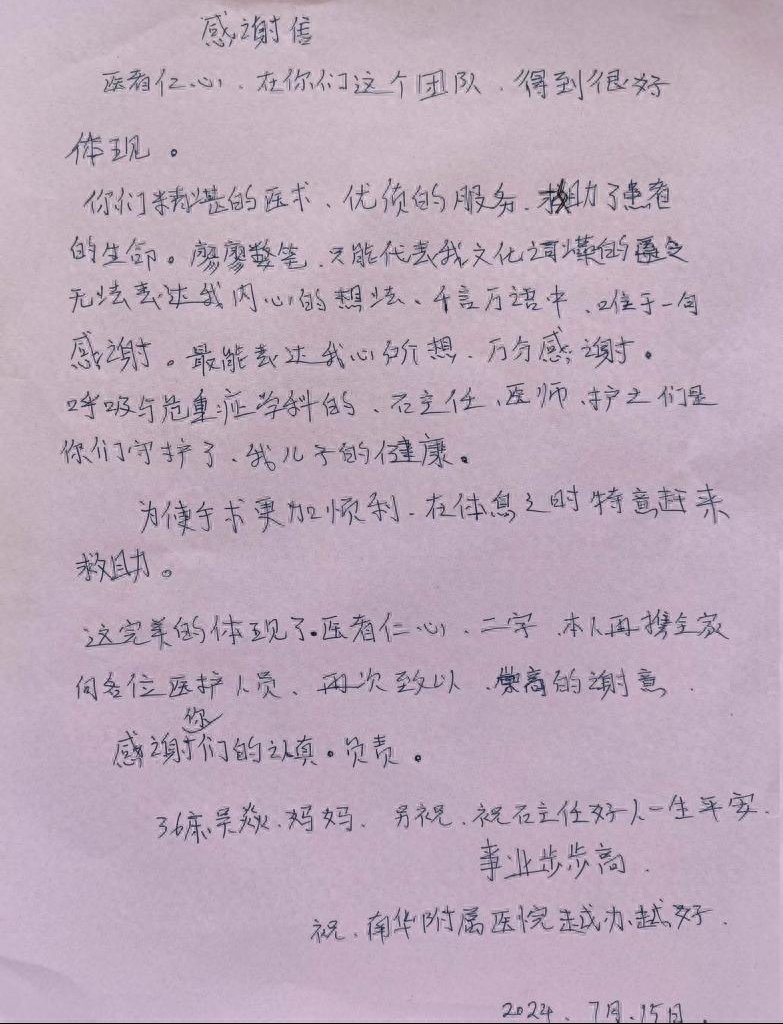 感谢信
医者仁心、在你们这个团队、得到很好
体现。
你们精湛的医术、优质的服务、救助了患者
的生命。廖廖数笔、只能代表我文化
无法表达我内心的想法、千言万语中、口住于一句
感谢。最能表达我心所想、万分感谢。
呼吸与危重症学科的、石主任、医师、护士们是
你们守护了、我儿子的健康。
为使手术更加顺利、在休息之时特意赶来
救助。
这完美的体现了。医者仁心、二字、本人再携全家
向各位医护人员、再次致以、崇高的谢意、
感谢你们的认真。负责。
36床吴焱、妈妈、另祝、祝石主任好人一生平安、
事业步步高、
祝、南华附属医院越办越好、
2024、7月、15日、